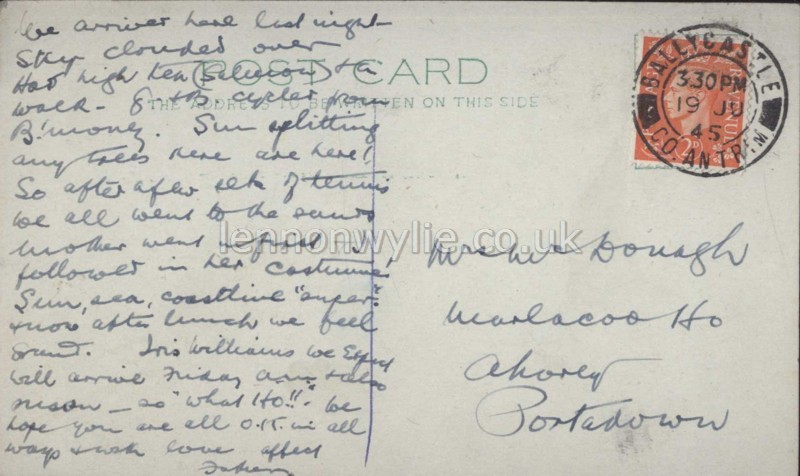 We arrived here last night
Sky clouded over
Had high tea (salmon) &
walk - cycled from
B'money. Sun splitting
any trees here are here!
So after a few sets of tennis
we all went to the sands
Mother went in first I
followed in her costume!
Sun, sea, coastline "super"
& now after lunch we feel
grand. Iris Williams we expect
will arrive Friday also
- so "what Ho!!" We
hope you are all O.K. in all
ways & with love affect
POST CARD
THE ADDRESS TO BE WRITTEN ON THIS SIDE
BALLYCASTLE
3.30 PM
19 JU
45
CO. ANTRIM
lennonwylie.co.uk
Mrs McDonagh
Marlacoo Ho
Ahorey
Portadown